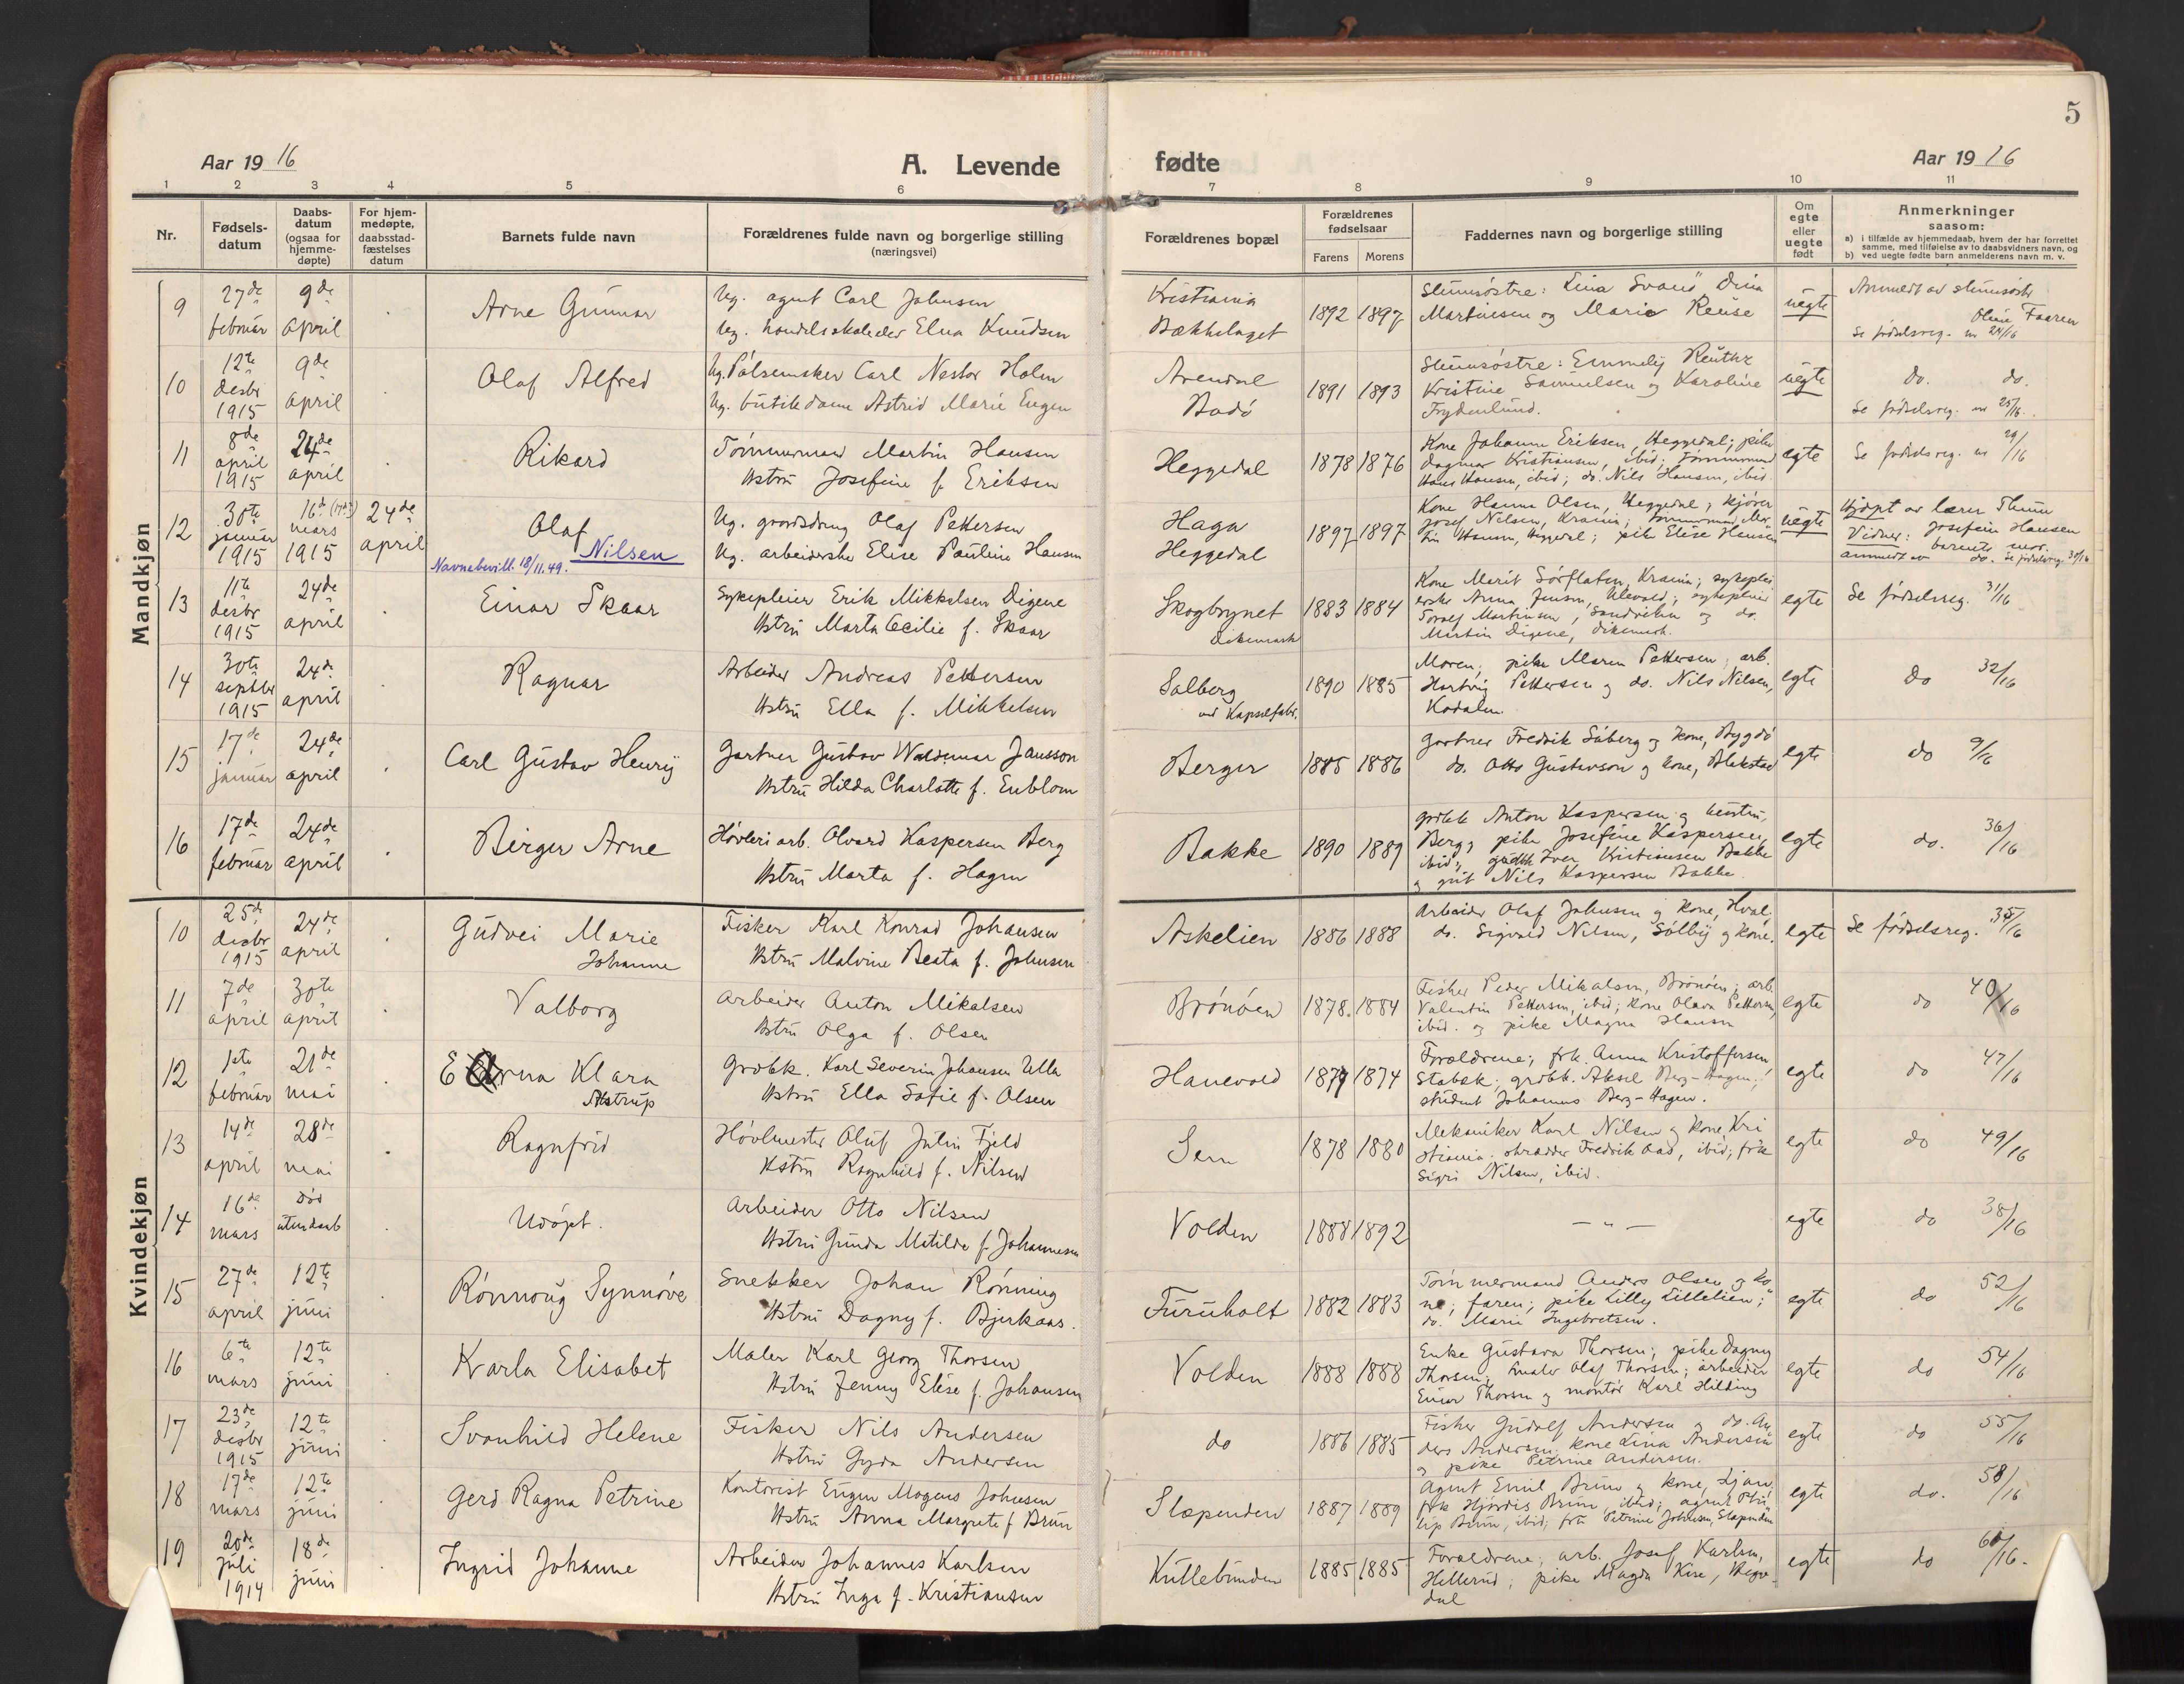 5
Aar 1916
A. Levende fødte
Aar 1916
1 2 3 4 5 6 7 8 9 10 11
Nr.
Fødsels-datum
Daabs-datum (ogsaa for hjemme-døpte)
For hjem-medøpte, daabsstad-fæstelses datum
Barnets fulde navn
Forældrenes fulde navn og borgerlige stilling (næringsvei)
Forældrenes bopæl
Forældrenes fødselsaar
Farens Morens
Faddernes navn og borgerlige stilling
Om egte eller uegte født
Anmerkninger saasom:
a) i tilfælde av hjemmedaab, hvem der har forrettet samme, med tilføielse av to daabsvidners navn, og
b) ved uegte fødte barn anmelderens navn m. v.
Mandkjøn
9 27de februar 9de april Arne Gunnar
Ug. agent Carl Johnsen
Ug. handelsskoleelev Elna Knudsen
Kristiania
Bækkelaget
1892 1897
Martinsen og Marie
uegte
Se fødselsreg. nr 24/16
10 12te desbr 1915 9de april Olaf Alfred
Ug. Pølsemaker Carl Nestor Holm
Ug. butikdame Astrid Marie Engen
Arendal
Bodø
1891 1893
Kristine Samuelsen og Karoline
Frydenlund.
uegte
do. do.
Se fødselsreg. nr 25/16.
11 8de april 1915 24de april Rikard
Tømmermand Martin Hansen
Hstru Josefine f. Eriksen
Heggedal
1878 1876
Kone Johanne Eriksen, Heggedal; pike
Dagmar Kristiansen, ibid; tømmermand
Hans Hansen, ibid; do. Nils Hansen, ibid.
egte
Se fødselsreg. nr 29/16
12 30te januar 1915 16de mars 1915 24de april Olaf Nilsen
Navnebevill. 18/11.49.
Ug. gaardsdreng Olaf Pettersen
Ug. arbeiderske Elise Pauline Hansen
Haga
Heggedal
1897 1897
Kone Hanna Olsen, Heggedal; kjører
Josef Nilsen, Krania; tømmermand Mar-
tin Hansen, Heggedal; pike Elise Hansen
uegte
Hjdøpt av lærer Thune
Vidner: Josefine Hansen
barnets mor.
anmeldt av do. Se fødselsreg. 30/16
13 11te desbr 1915 24de april Einar Skaar
Sykepleier Erik Mikkelsen Digene
Hstru Marta Cecilie f. Skaar
Skogbrynet
Dikemark
1883 1884
Kone Marit Sørflaten, Krania; sykeplei
erske Anna Jensen, Ulevold; sykepleier
Torolf Martinsen, Sandviken og do.
Martin Digene, Dikemark.
egte
Se fødselsreg. 31/16
14 30te septbr 1915 24de april Ragnar
Arbeider Andreas Pettersen
Hstru Ella f. Mikkelsen
Solberg
ved Kapselfabr.
1890 1885
Moren; pike Maren Pettersen, arb.
Hartvig Pettersen og do. Nils Nilsen,
Kodalen.
egte
do 32/16
15 17de januar 24de april Carl Gustav Henry
Gartner Gustav Waldemar Jansson
Hstru Hilda Charlotte f. Enblom
Berger
1885 1886
Gartner Fredrik Såberg og kone, Bygdø
do. Otto Gustavson og kone, Blakstad
egte
do 9/16
16 17de februar 24de april Birger Arne
Høvleriarb. Olvard Kaspersen Berg
Hstru Marta f. Hagen
Bakke
1890 1889
grdbk Anton Kaspersen og hustru,
Berg; pike Josefine Kaspersen,
ibid; grdbk Iver Kristiansen Bakke
og gut Nils Kaspersen Bakke.
egte
do. 36/16
Kvindekjøn
10 25de desbr 1915 24de april Gudvei Marie
Johanne
Fisker Karl Konrad Johansen
Hstru Malvine Beata f. Johnsen
Askelien
1886 1888
Arbeider Olaf Johnsen og kone, Hval;
do. Sigvald Nilsen, Solby og kone.
egte
Se fødselsreg. 35/16
11 7de april 30te april Valborg
Arbeider Anton Mikalsen
Hstru Olga f. Olsen
Brønøen
1878. 1884
Fisker Peder Mikalsen, Brønøen; arb.
Valentin Pettersen, ibid; kone Olava Pettersen,
ibid. og pike Magna Hansen
egte
do 40/16
12 1ste februar 21de mai Erna Klara
Astrup
Grdbk. Karl Severin Johansen Ulla
Hstru Ella Sofie f. Olsen
Hanevold
1879 1874
Forældrene; frk. Anna Kristoffersen,
Stabæk; grdbk. Aksel Berg-Hagen;
student Johannes Berg-Hagen.
egte
do 47/16
13 14de april 28de mai Ragnfrid
Høvlmester Oluf Julin Fjeld
Hstru Ragnhild f. Nilsen
Sem
1878 1880
Mekaniker Karl Nilsen og kone Kri
stiania; skrædder Fredrik Aas, ibid; frk
Sigri Nilsen, ibid.
egte
do 49/16
14 16de mars død uten daab Udøpt.
Arbeider Otto Nilsen
Hstru Gunda Matilde f. Johannesen
Volden
1888 1892
— " —
egte
do 38/16
15 27de april 12te juni Rønnoug Synnøve
Snekker Johan Rønning
Hstru Dagny f. Bjerkaas.
Furuholt
1882 1883
Tømmermand Anders Olsen og ko
ne; faren; pike Lilly Lillelien;
do. Marie Ingebretsen.
egte
do 52/16
16 6te mars 12te juni Karla Elisabet
Maler Karl Georg Thorsen
Hstru Jenny Elise f. Johansen
Volden
1888 1888
Enke Gustava Thorsen; pike Dagny
Thorsen; maler Olaf Thorsen; arbeider
Einar Thorsen og montør Karl Hilding
egte
do 54/16
17 23de desbr 1915 12te juni Svanhild Helene
Fisker Nils Andersen
Hstru Gyda Andersen
do
1886 1885
Fisker Gudolf Andersen og do. An
ders Andersen, kone Lina Andersen
og pike Petrine Andersen.
egte
do 55/16
18 17de mars 12te juni Gerd Ragna Petrine
Kontorist Eugen Mogens Johnsen
Hstru Anna Margrete f. Brun
Slæpenden
1887 1889
Agent Emil Brun og kone, Ljan;
frk Hjørdis Brun, ibid; agent Phi
lip Brun, ibid; fru Petrine Johnsen, Slæpenden
egte
do. 58/16
19 20de juli 1914 18de juni Ingrid Johanne
Arbeider Johannes Karlsen
Hstru Inga f. Kristiansen
Kutlebunden
1885 1885
Forældrene, arb. Josef Karlsen,
Hellerud; pike Magda Kise, Hegge-
dal
egte
do 60/16.